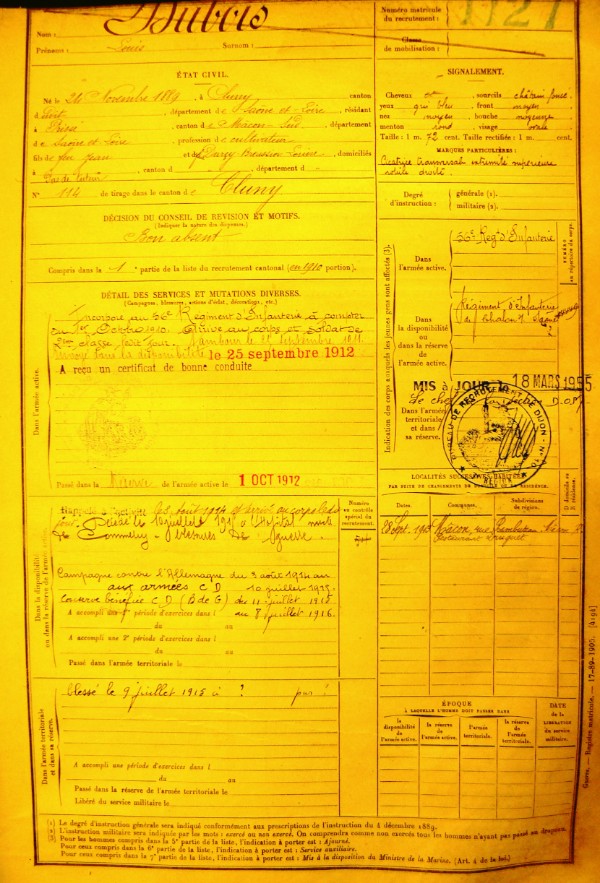 Dubois
Nom :
Prénoms : Louis Surnom :
Numéro matricule
du recrutement : 1127
Classe
de mobilisation :
ÉTAT CIVIL.
Né le 24 Novembre 1889, à Cluny, canton
d dudit, département de Saône et Loire, résidant
à Prissé, canton de Mâcon Sud, département
de Saône et Loire, profession de cultivateur
fils de feu Jean et d, domiciliés
à, canton d, département d
N° 114 de tirage dans le canton de Cluny
SIGNALEMENT.
Cheveux et sourcils châtain foncé
yeux gris bleu, front moyen
nez moyen, bouche moyenne
menton rond visage ovale
Taille : 1 m. 72 cent. Taille rectifiée : 1 m. cent.
MARQUES PARTICULIÈRES :
Cicatrice transversale extrémité supérieure
droite.
Degré
d'instruction :
générale (1).
militaire (2).
DÉCISION DU CONSEIL DE REVISION ET MOTIFS.
(Indiquer la nature des dispenses.)
Bon absent
Compris dans la 1e partie de la liste du recrutement cantonal (en 1910 portion).
DÉTAIL DES SERVICES ET MUTATIONS DIVERSES.
(Campagnes, blessures, actions d'éclat, décorations, etc.)
Incorporé au 56e Régiment d'Infanterie à compter
du 1er Octobre 1910. Arrivé au corps et soldat de
2ème classe ledit jour. Tambour le 25 Septembre 1911.
Envoyé dans la disponibilité le 25 septembre 1912
A reçu un certificat de bonne conduite
Dans l'armée active.
Passé dans la Réserve de l'armée active le 1 OCT 1912
Indication des corps auxquels les jeunes gens sont affectés (3).
Dans
l'armée active.
56e Regt d'Infanterie
NUMÉRO
au répertoire du corps.
Dans
la disponibilité
ou dans la réserve
de
l'armée active.
Régiment d'Infanterie
de Chalon
MIS à JOUR le 18 MARS 1955
Dans l'armée
territoriale
et dans
sa réserve.
BUREAU DE RECRUTEMENT DE DIJON
LOCALITÉS SUCCESSIVES HABITÉES
PAR SUITE DE CHANGEMENTS DE DOMICILE OU DE RÉSIDENCE.
Dates. Communes. Subdivisions
de région.
D. domicile ou
R. résidence.
Mâcon, rue
Restaurant
Dans la disponibilité
ou dans la réserve de l'armée active.
Numéro
au contrôle
spécial du
recrutement.
Rappelé à l'activité Août 1914 et arrivé au corps ledit
jour. Décédé le juillet
de Commercy Blessures de Guerre.
Campagne contre l'Allemagne du 3 août 1914 au
aux armées C D 10 juillet 1915.
conserve bénéfice C D (B de G) du 11 juillet 1915
A accompli une 1re période d'exercices dans l au 8 juillet 1916.
du au
A accompli une 2e période d'exercices dans l
du au
Passé dans l'armée territoriale le
Dans l'armée territoriale
et dans sa réserve.
blessé le 9 juillet 1915 à ? par ?
A accompli une période d'exercices dans l
du au
Passé dans la réserve de l'armée territoriale le
Libéré du service militaire le
ÉPOQUE
À LAQUELLE L'HOMME DOIT PASSER DANS
la
disponibilité
de
l'armée active.
la réserve
de
l'armée active.
l'armée
territoriale.
la réserve
de
l'armée
territoriale.
DATE
de la
LIBÉRATION
du service
militaire.
Guerre. — Registre matricule. — 17-89-1905. [4194]
(1) Le degré d'instruction générale sera indiqué conformément aux prescriptions de l'instruction du 4 décembre 1889.
(2) L'instruction militaire sera indiquée par les mots : exercé ou non exercé. On comprendra comme non exercés tous les hommes n'ayant pas passé au drapeau.
Pour les hommes compris dans la 5e partie de la liste, l'indication à porter est : Ajourné.
Pour ceux compris dans la 6e partie de la liste, l'indication à porter est : Service auxiliaire.
Pour ceux compris dans la 7e partie de la liste, l'indication à porter est : Mis à la disposition du Ministre de la Marine. (Art. 4 de la loi.)